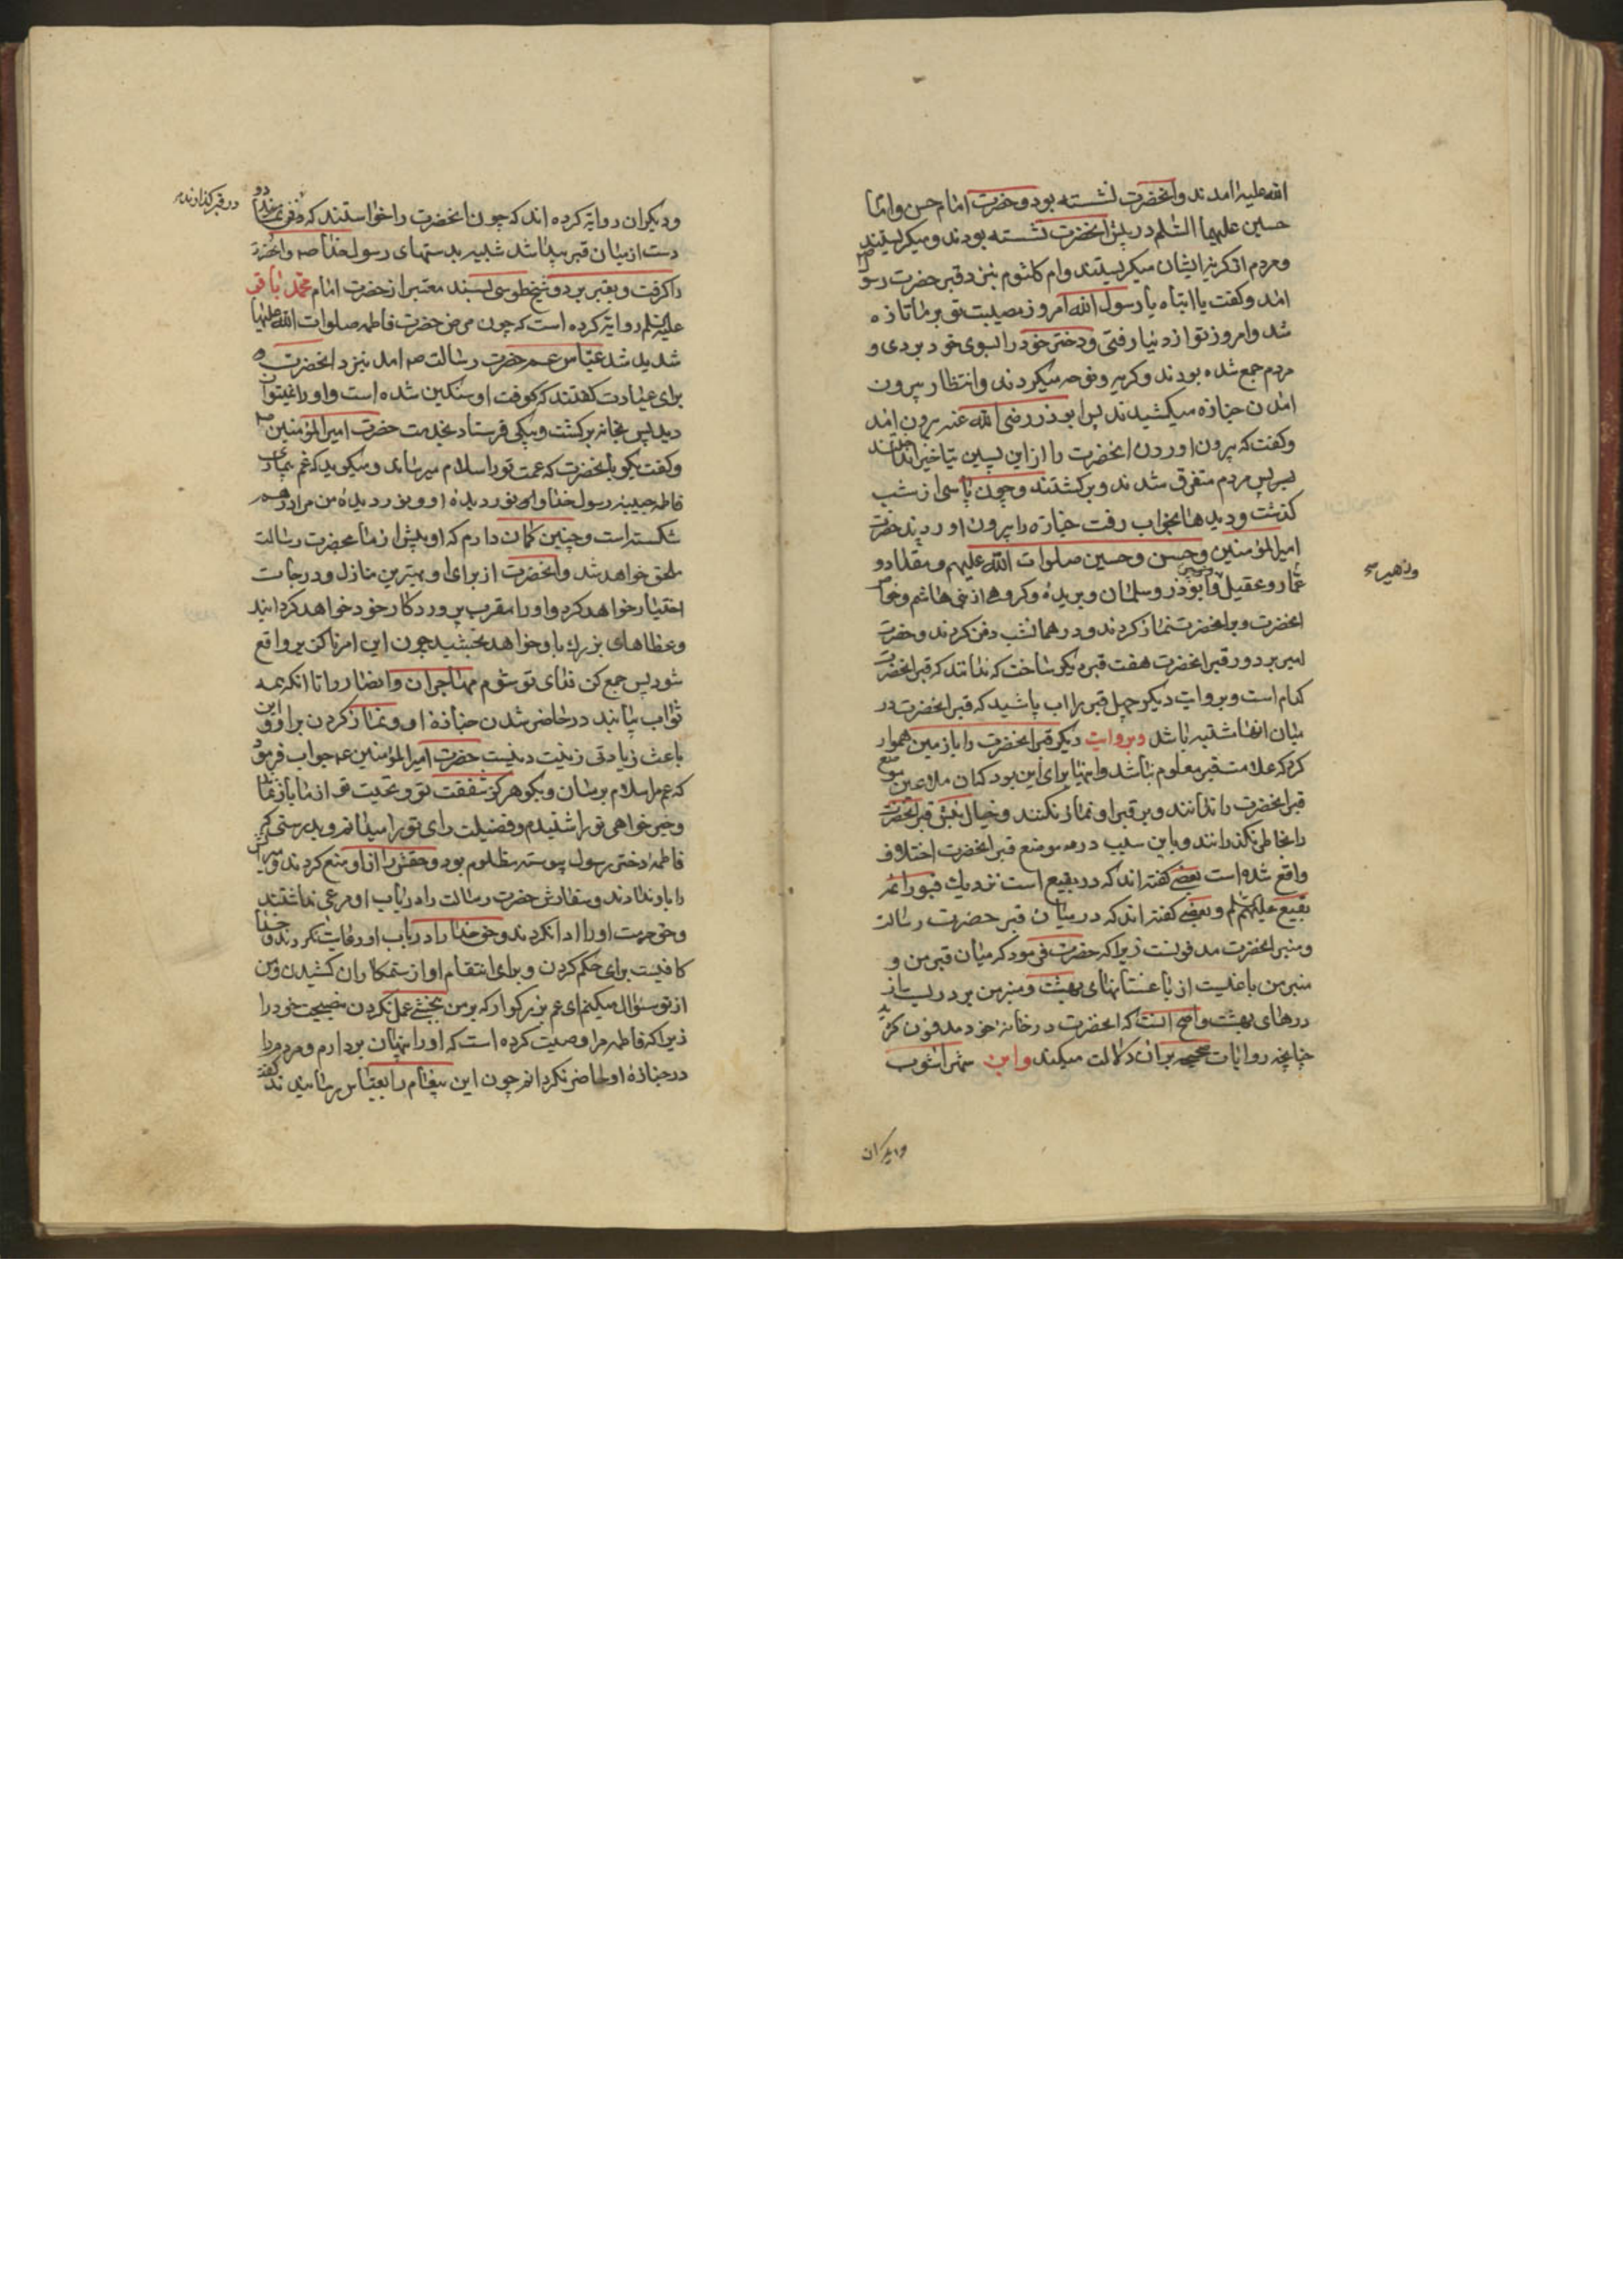 الله علیه امدند و انحضرت نشسته بود و حضرت امام حسن و امام
حسین علیهما السلم در پیش انحضرت نشسته بودند و میکریستند
و مردم از کریۀ ایشان میکریستند و ام کلثوم بنزد قبر حضرت رسول ص
امد و کفت یا ابتاه یا رسول الله امروز مصیبت تو بر ما تازه
شد و امروز تو از دنیا رفتی و دختر خود را بسوی خود بردی و
مردم جمع شده بودند و کریه و نوحه میکردند و انتظار بیرون
امدن جنازه میکشیدند پس ابوذر رضی الله عنه بیرون امد
و کفت که بیرون اوردن انحضرت را از این پسین بتاخیر انداختند
پس مردم متفرق شدند و برکشتند و چون پاسی از شب
کذشت و دیدها بخواب رفت جنازه را بیرون اوردند حضرت
امیر المؤمنین و حسن و حسین صلوات الله علیهم و مقداد و
عمار و عقیل و زبیر و ابوذر و سلمان و بریده و کروهی از بنی هاشم و خواص
وزهیر
انحضرت و بر انحضرت نماز کردند و در همانشب دفن کردند و حضرت
امیر بر دور قبر انحضرت هفت قبر دیکر ساخت که ندانند که قبر انحضرت
کدام است و بروایت دیکر چهل قبر را اب پاشید که قبر انحضرت در
میان انها مشتبه باشد و بروایت دیکر قبر انحضرت را با زمین هموار
کرد که علامت قبر معلوم نباشد و اینها برای این بود که ان ملاعین موضع
قبر انحضرت را ندانند و بر قبر او نماز نکنند و خیال نبش قبر انحضرت
را بخاطر نکذرانند و باین سبب در موضع قبر انحضرت اختلاف
واقع شده است بعضی کفته اند که در بقیع است نزدیک قبور ائمه
بقیع علیهم السلم و بعضی کفته اند که در میان قبر حضرت رسالت
و منبر انحضرت مدفونست زیرا که حضرت فرمود که میان قبر من و
منبر من باغیست از باغستانهای بهشت و منبر من بر دریست از
درهای بهشت و اصح انست که انحضرت در خانه خود مدفون کردید
چنانچه روایات صحیحه بر ان دلالت میکند و ابن شهر اشوب
ودیکران
و دیکران روایة کرده اند که چون انحضرت را خواستند که در قبر کذارند دو
دست از میان قبر پیدا شد شبیه بدستهای رسول خدا ص و انحضرت
را کرفت و بقبر برد و شیخ طوسی بسند معتبر از حضرت امام محمد باقر
علیه السلم روایة کرده است که چون مرض حضرت فاطمه صلوات الله علیها
شدید شد عباس عم حضرت رسالت ص امد بنزد انحضرت
برای عیادت کفتند که کوفت او سنکین شده است و او را نمیتوان
دید پس بخانه برکشت و پیکی فرستاد بخدمت حضرت امیر المؤمنین
و کفت بکو بانحضرت که عمت تو را سلام میرساند و میکوید که غم بیماری
فاطمه حبیبۀ رسول خدا و نور دیدۀ او و نور دیدۀ من مرا درهم
شکسته است و چنین کمان دارم که او پیش از ما بحضرت رسالت
ملحق خواهد شد و انحضرت از برای او بهترین منازل و درجات
اختیار خواهد کرد و او را مقرب پروردکار خود خواهد کردانید
و عطاهای بزرك باو خواهد بخشید چون این امر ناکزیر واقع
شود پس جمع کن فدای تو شوم مهاجران و انصار را تا انکه همه
ثواب بیابند در حاضر شدن جنازۀ او و نماز کردن بر او و این
باعث زیادتی زینت دینست حضرت امیر المؤمنین ع جواب فرمود
که عم مرا سلام برسان و بکو هرکز شفقت تو و محبت تو از ما باز نماند
و خیر خواهی تو را شنیدم و فضیلت رای تو را میدانم و بدرستی که
فاطمه دختر رسول پیوسته مظلوم بود و حقش را از او منع کردند و میراثش
را باو ندادند و سفارش حضرت رسالت را در باب او مرعی نداشتند
و حق حرمت او را ادا نکردند و حق خدا را در باب او رعایت نکردند و خدا
کافیست برای حکم کردن و برای انتقام او از ستمکاران کشیدن و من
از تو سئوال میکنم ای عم بزرکوار که بر من ببخشی عمل نکردن نصیحت خود را
زیرا که فاطمه مرا وصیت کرده است که او را پنهان بردارم و مردم را
در جنازۀ او حاضر نکردانم چون این پیغام را بعباس رسانیدند کفت